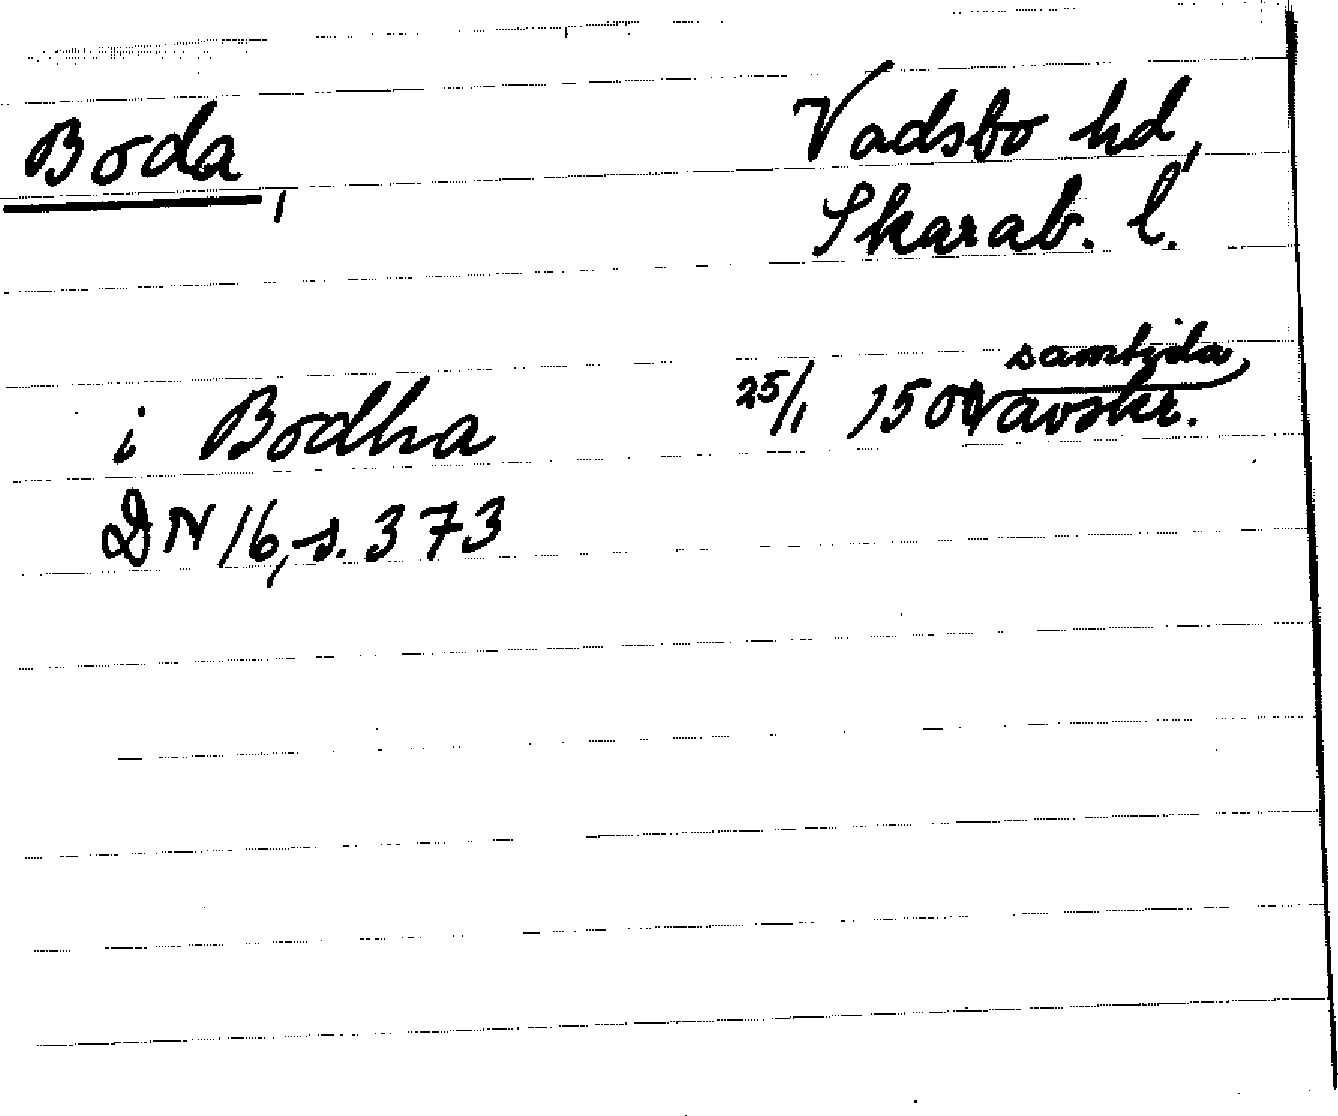 Boda,
Vadsbo hd,
Skarab. l.
i Bodha
25/1 1500 samtida avskr.
DN 16, s. 373